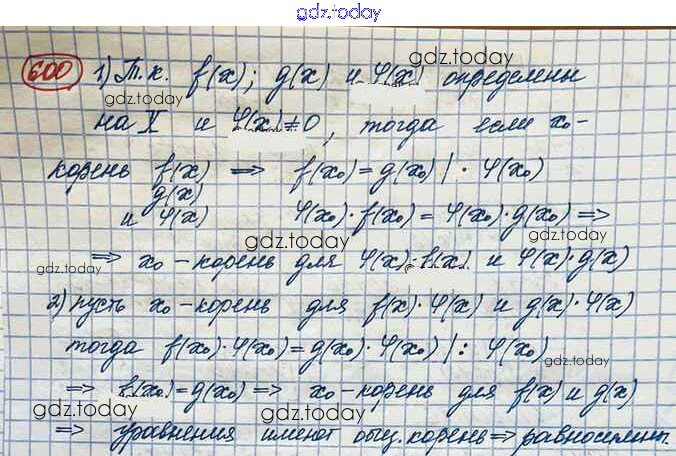 gdz.today
600 1) Т.к. f(x); g(x) и φ(x) определены
на X и φ(x)≠0, тогда если x₀-
корень f(x) ⇒ f(x₀)=g(x₀) | · φ(x₀)
g(x)
и φ(x) φ(x₀)·f(x₀)=φ(x₀)·g(x₀) ⇒
⇒ x₀-корень для φ(x)·f(x) и φ(x)·g(x)
2) пусть x₀-корень для f(x)·φ(x) и g(x)·φ(x)
тогда f(x₀)·φ(x₀)=g(x₀)·φ(x₀) | : φ(x₀)
⇒ f(x₀)=g(x₀) ⇒ x₀-корень для f(x) и g(x)
⇒ уравнения имеют общ. корень ⇒ равносильны.
gdz.today
gdz.today
gdz.today
gdz.today
gdz.today
gdz.today
gdz.today
gdz.today
gdz.today
gdz.today
gdz.today